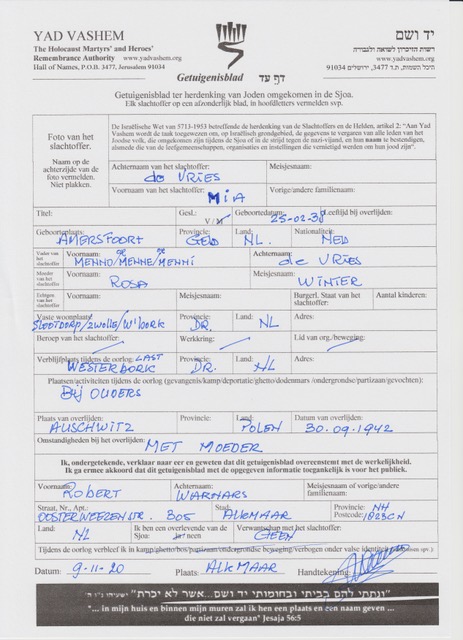 YAD VASHEM
יד ושם
The Holocaust Martyrs' and Heroes'
Remembrance Authority www.yadvashem.org
Hall of Names, P.O.B. 3477, Jerusalem 91034
רשות הזיכרון לשואה ולגבורה
www.yadvashem.org
היכל השמות, ת.ד. 3477, ירושלים 91034
Getuigenisblad דף עד
Getuigenisblad ter herdenking van Joden omgekomen in de Sjoa.
Elk slachtoffer op een afzonderlijk blad, in hoofdletters vermelden svp.
Foto van het slachtoffer.
Naam op de achterzijde van de foto vermelden. Niet plakken.
De Israëlische Wet van 5713-1953 betreffende de herdenking van de Slachtoffers en de Helden, artikel 2: "Aan Yad
Vashem wordt de taak toegewezen om, op Israëlisch grondgebied, de gegevens te vergaren van alle leden van het
Joodse volk, die omgekomen zijn tijdens de Sjoa of in de strijd tegen de nazi-vijand, en hun naam te bestendigen,
alsmede die van de leefgemeenschappen, organisaties en instellingen die vernietigd werden om hun jood zijn".
Achternaam van het slachtoffer: Meisjesnaam:
de VRIES
Voornaam van het slachtoffer: Vorige/andere familienaam:
MIA
Titel: Gesl.: V / M Geboortedatum: Leeftijd bij overlijden:
25-02-38
Geboorteplaats: Provincie: Land: Nationaliteit:
AMERSFOORT GELD NL. NED
Vader van het slachtoffer Voornaam: Achternaam:
MENNO/MENNE/MENNI de VRIES
Moeder van het slachtoffer Voornaam: Meisjesnaam:
ROSA WINTER
Echtgen van het slachtoffer Voornaam: Meisjesnaam: Burgerl. Staat van het slachtoffer: Aantal kinderen:
Vaste woonplaats: Provincie: Land: Adres:
SLOOTDORP/ZWOLLE/W'BORK DR. NL
Beroep van het slachtoffer: Werkkring: Lid van org./beweging:
Verblijfplaats tijdens de oorlog: LAST Provincie: Land: Adres:
WESTERBORK DR. NL
Plaatsen/activiteiten tijdens de oorlog (gevangenis/kamp/deportatie/ghetto/dodenmars /ondergrondse/partizaan/gevochten):
Bij OUDERS
Plaats van overlijden: Provincie: Land: Datum van overlijden:
AUSCHWITZ POLEN 30.09.1942
Omstandigheden bij het overlijden:
MET MOEDER
Ik, ondergetekende, verklaar naar eer en geweten dat dit getuigenisblad overeenstemt met de werkelijkheid.
Ik ga ermee akkoord dat dit getuigenisblad met de opgegeven informatie toegankelijk is voor het publiek.
Voornaam: Achternaam: Meisjesnaam of vorige/andere familienaam:
ROBERT WARNARS
Straat, Nr., Apt.: Stad: Provincie: NH
OOSTERWEEZENSTR. 305 AlkMAAR Postcode: 1823CN
Land: Ik ben een overlevende van de Sjoa: ja/ neen Verwantschap met het slachtoffer:
NL GEEN
Tijdens de oorlog verbleef ik in kamp/ghetto/bos/partizaan/ondergrondse beweging/verbogen onder valse identiteit
Datum: 9-11-20 Plaats: AlkMAAR Handtekening:
"ונתתי להם בביתי ובחומותי יד ושם...אשר לא יכרת" ישעיהו נ"ו ה'
"... in mijn huis en binnen mijn muren zal ik hen een plaats en een naam geven ...
die niet zal vergaan" Jesaja 56:5